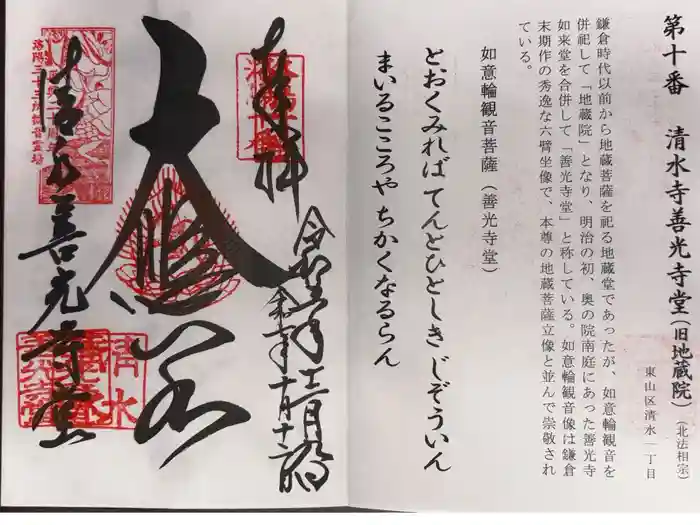 第十番　清水寺善光寺堂（旧地蔵院）（北法相宗）
東山区清水一丁目
鎌倉時代以前から地蔵菩薩を祀る地蔵堂であったが、如意輪観音を
併祀して「地蔵院」となり、明治の初、奥の院南庭にあった善光寺
如来堂を合併して「善光寺堂」と称している。如意輪観音像は鎌倉
末期作の秀逸な六臂坐像で、本尊の地蔵菩薩立像と並んで崇敬され
ている。
如意輪観音菩薩（善光寺堂）
とおくみれば てんとひとしき じぞういん
まいるこころや ちかくなるらん
奉拝
大悲閣
清水善光寺堂
洛陽三十三所観音霊場
清水